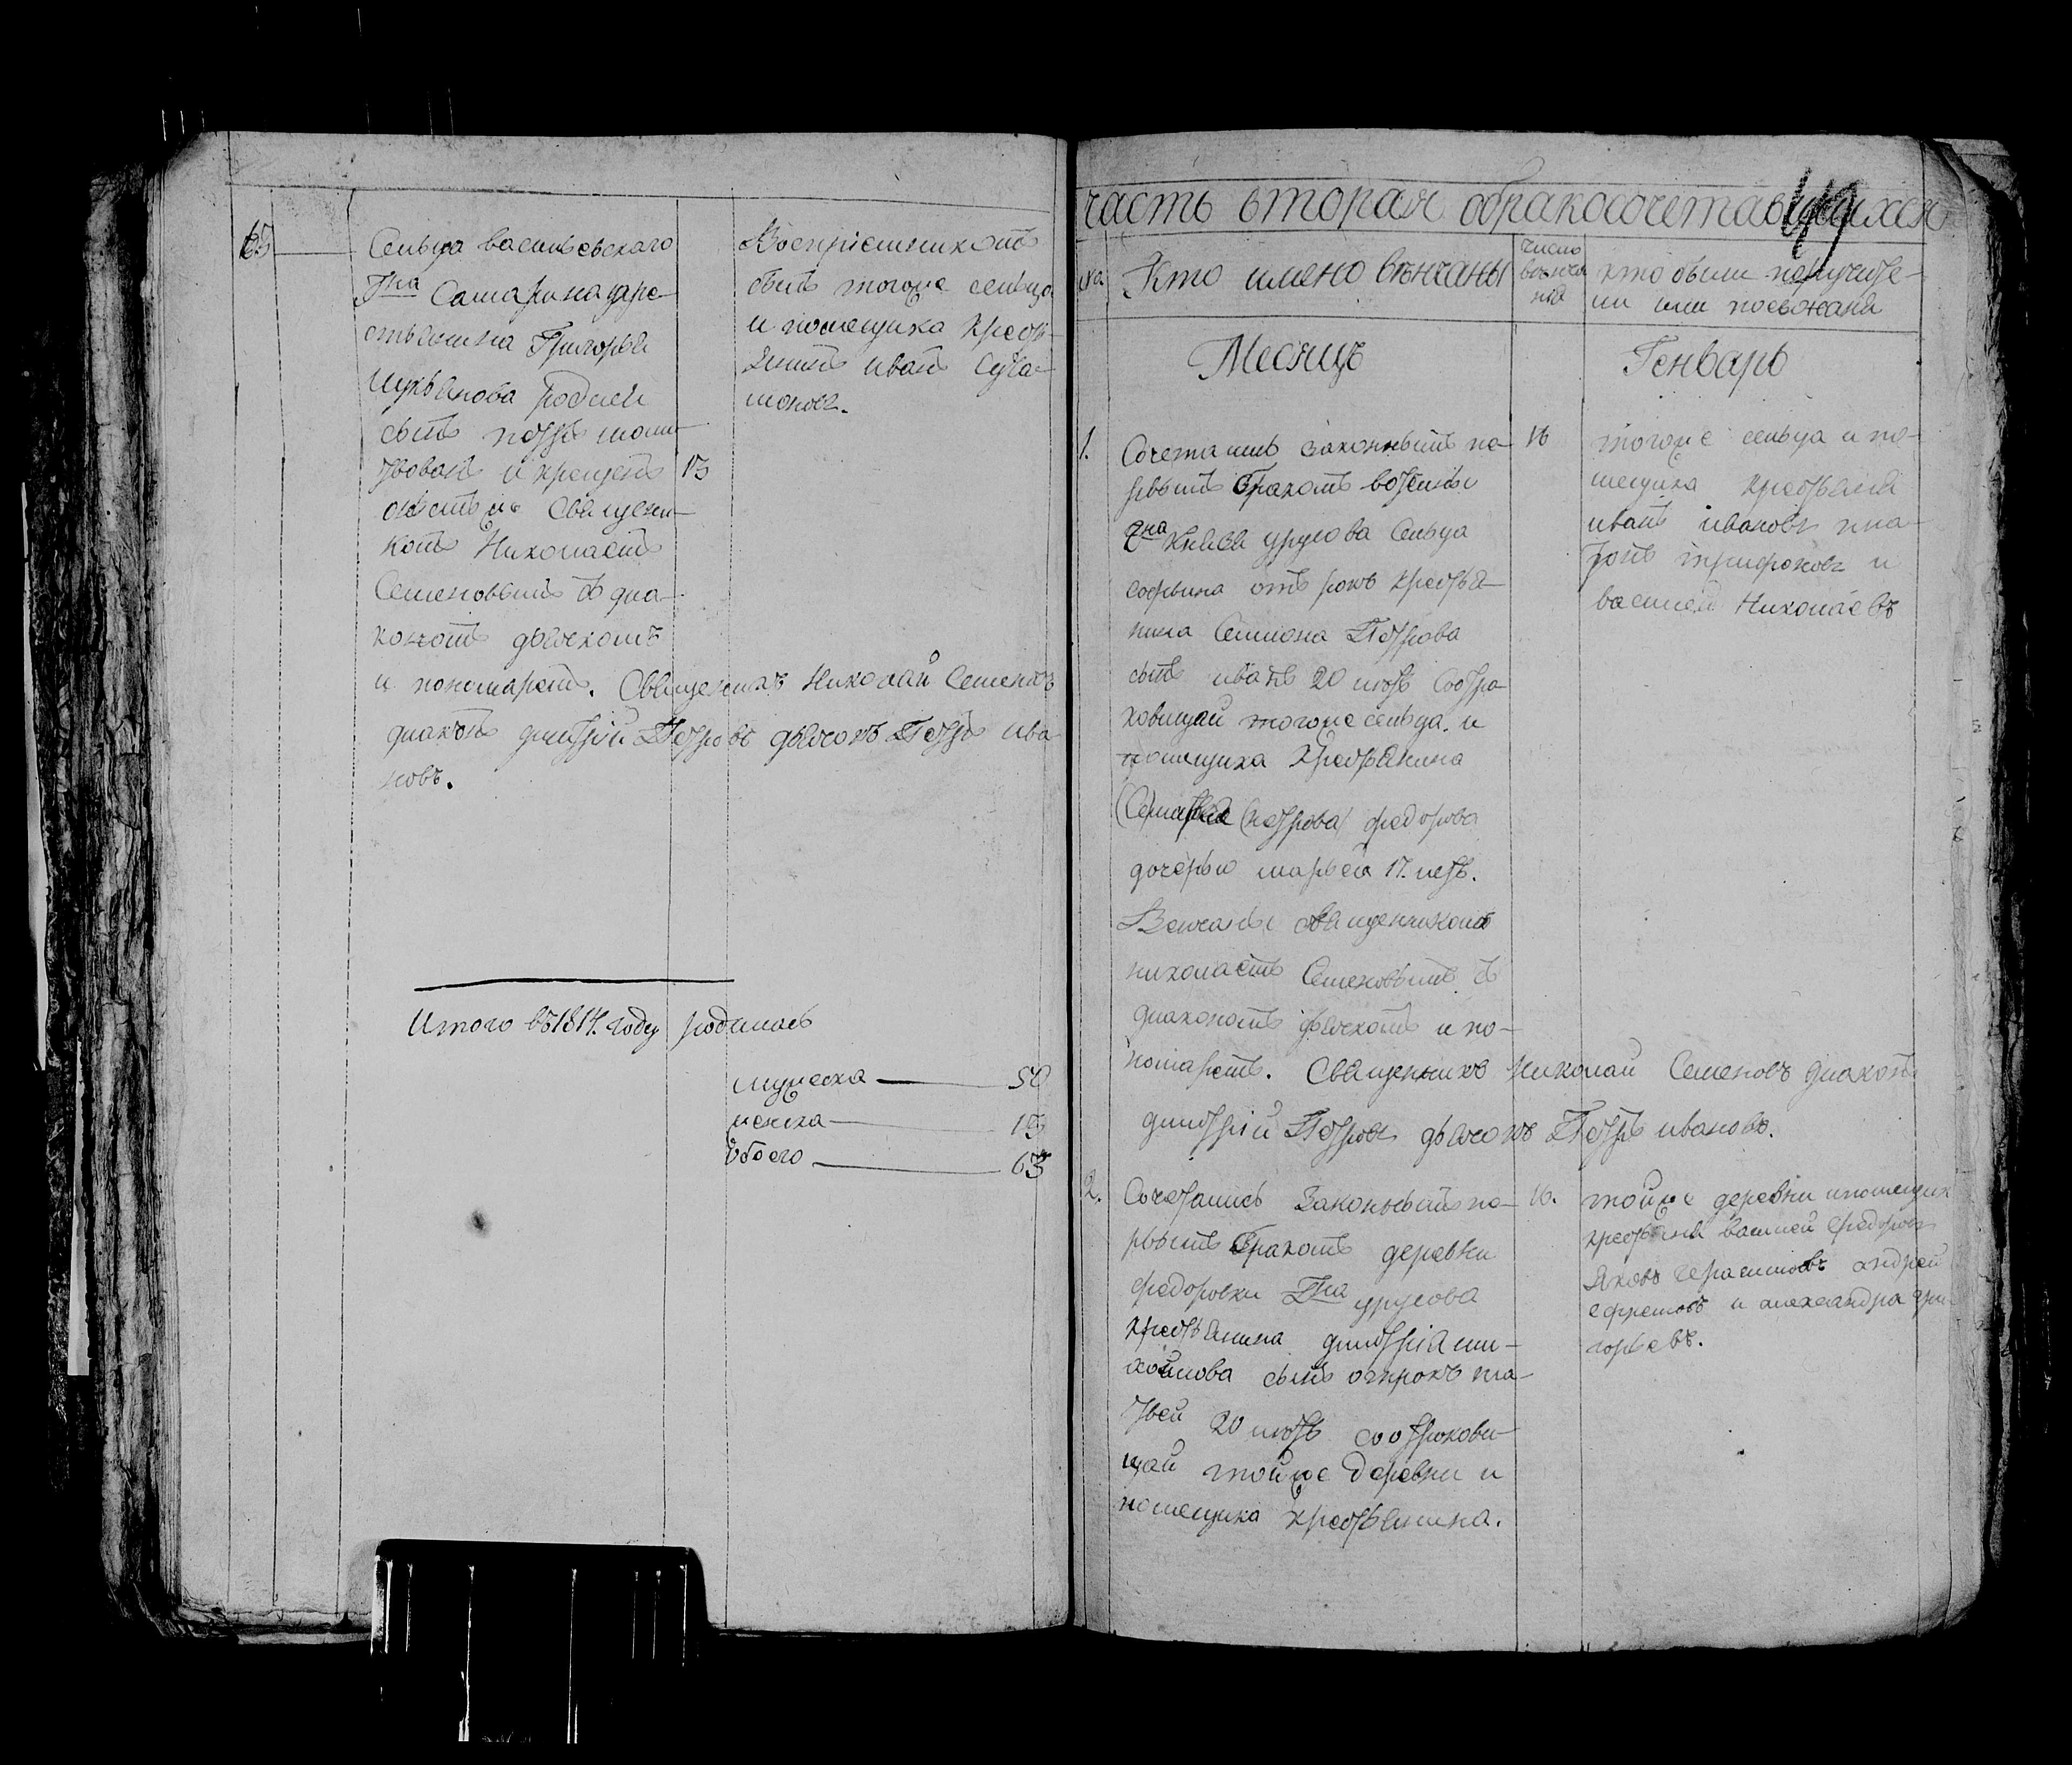 65
Сельца васильевскаго
Гна Самарина кре-
стьянина Григорья
Лукьянова родился
сынъ петръ моли-
твованъ и крещенъ 15
Священи-
комъ Николаемъ
Семеновымъ съ диа-
кономъ дьячкомъ
и пономаремъ. Священникъ Николай Семеновъ
диаконъ дмитрій Петровъ дьячокъ Петръ ива
новъ.
Воспріемникомъ
былъ тогоже сельца
и помещика кресть-
янинъ иванъ
Итого въ 1814. году родилось
мужеска — 50
женска — 15
обоего — 65
часть вторая обракосочетавшихся
49
Кто имено венчаны
число
венча
нія
кто были поручите-
ли или поезжаня
Месяцъ Генварь
1. Сочетались законнымъ пе- 16
рвымъ бракомъ
Гна Князя урусова Сельца
софьина отрокъ крестья-
нина Симиона Петрова
сынъ иванъ 20 летъ Соотро-
ковицай тогоже сельца и
помещика Крестьянина
(петрова) федорова
дочерью марьей 17. летъ.
Венчаны священникомъ
николаемъ Семеновымъ съ
диакономъ дьячкомъ и по-
номаремъ. Священникъ Николай Семеновъ диаконъ
дмитрій Петровъ дьячокъ Петръ ивановъ.
тогоже сельца и по-
мещика крестьяня
иванъ ивановъ пла-
тонъ трифоновъ и
василей Николаевъ
2. Сочетались Законнымъ пе- 16.
рвымъ бракомъ деревни
федоровки Гна урусова
крестьянина дмитрія ми-
хайлова сынъ отрокъ ма-
твей 20 летъ соотрокови-
цай тойже деревни и
помещика крестьянина.
тойже деревни ипомещик
крестьяня василей федоровъ
Яковъ Герасимовъ андрей
ефремовъ и александра гри
горьевъ.